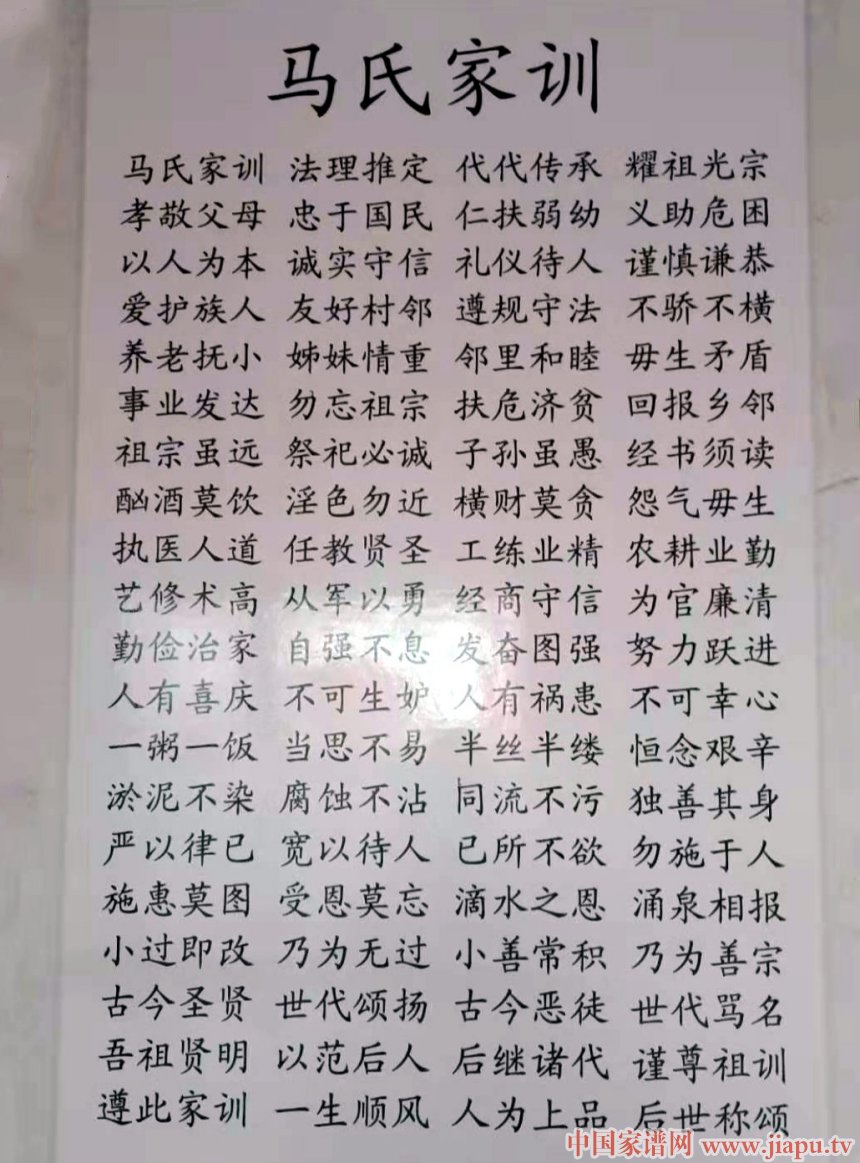 马氏家训
马氏家训 法理推定 代代传承 耀祖光宗
孝敬父母 忠于国民 仁扶弱幼 义助危困
以人为本 诚实守信 礼仪待人 谨慎谦恭
爱护族人 友好村邻 遵规守法 不骄不横
养老抚小 姊妹情重 邻里和睦 毋生矛盾
事业发达 勿忘祖宗 扶危济贫 回报乡邻
祖宗虽远 祭祀必诚 子孙虽愚 经书须读
酗酒莫饮 淫色勿近 横财莫贪 怨气毋生
执医人道 任教贤圣 工练业精 农耕业勤
艺修术高 从军以勇 经商守信 为官廉清
勤俭治家 自强不息 发奋图强 努力跃进
人有喜庆 不可生妒 人有祸患 不可幸心
一粥一饭 当思不易 半丝半缕 恒念艰辛
淤泥不染 腐蚀不沾 同流不污 独善其身
严以律已 宽以待人 已所不欲 勿施于人
施惠莫图 受恩莫忘 滴水之恩 涌泉相报
小过即改 乃为无过 小善常积 乃为善宗
古今圣贤 世代颂扬 古今恶徒 世代骂名
吾祖贤明 以范后人 后继诸代 谨尊祖训
遵此家训 一生顺风 人为上品 后世称颂
中国家谱网 www.jiapu.tv